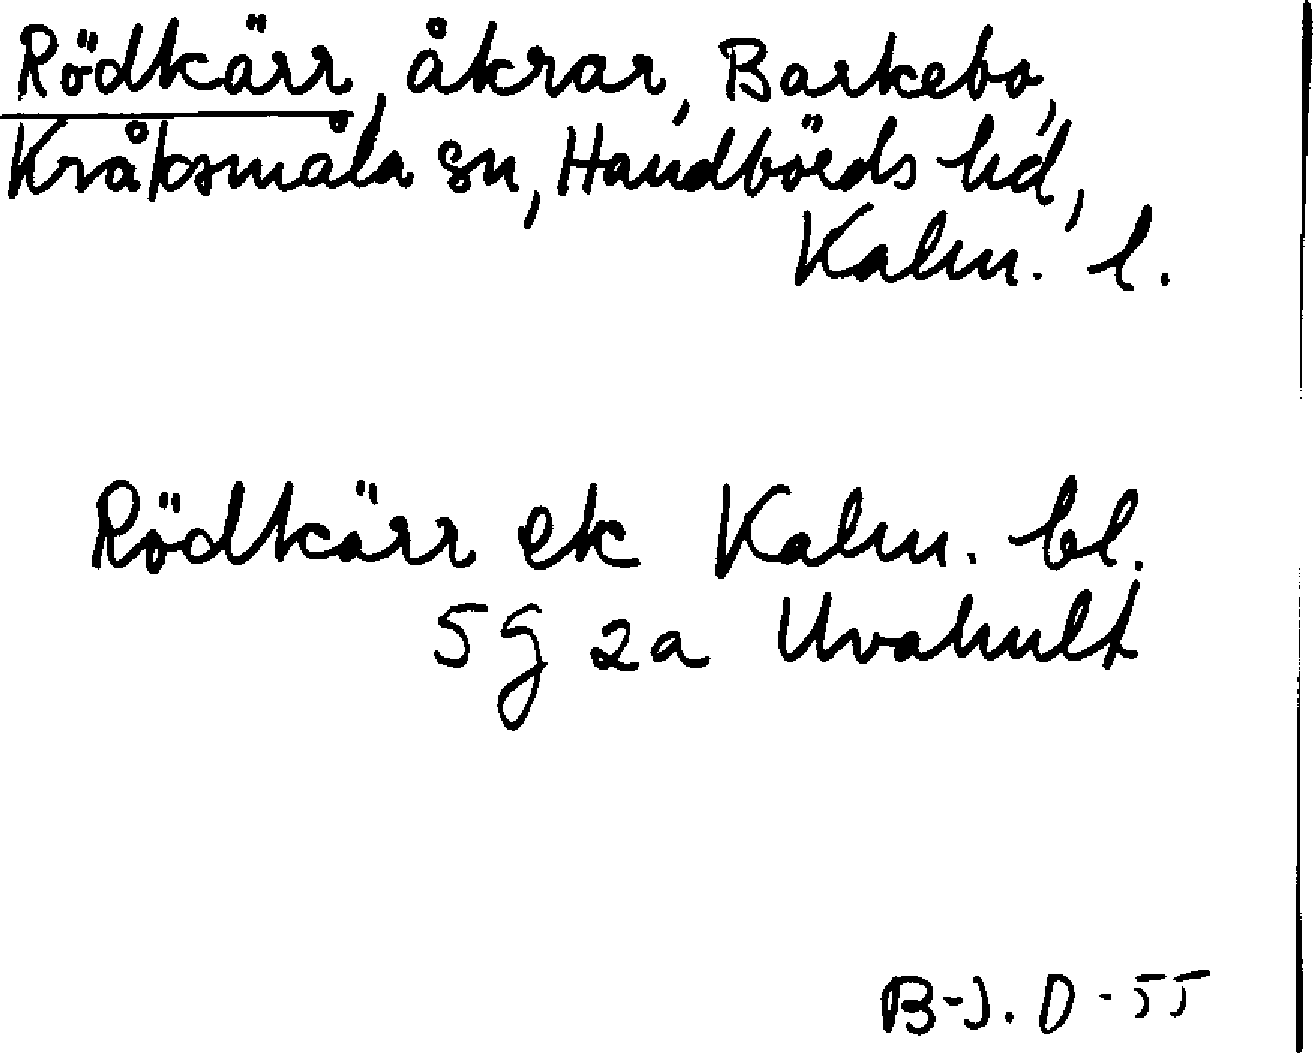 Rödkärr, åkrar, Barkebo,
Kråksmåla sn, Handbörds hd,
Kalm. l.
Rödkärr ek Kalm. bl.
5 g 2a Uvahult
B-J. O-55